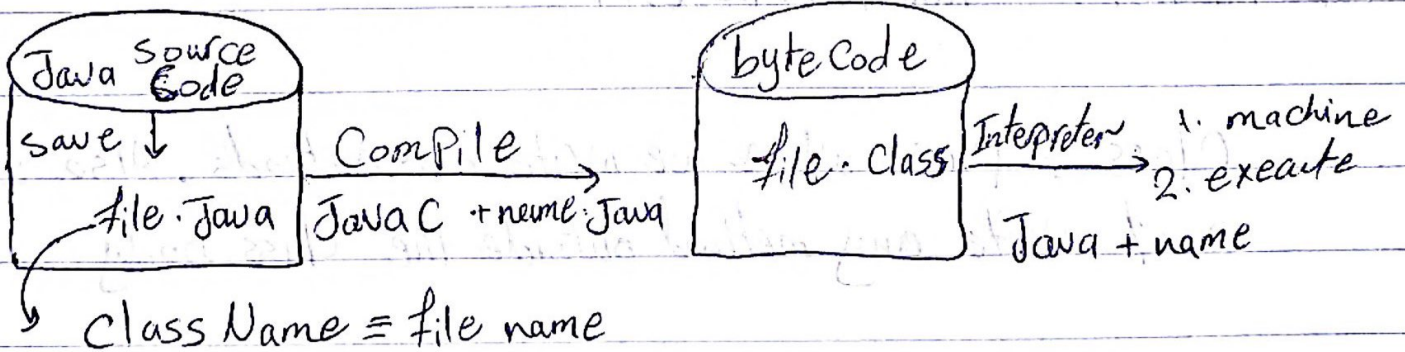 Java Source Code
save ↓
file.Java
Compile
JavaC + name.Java
byteCode
file.Class
Intepreter
1. machine
2. execute
Java + name
Class Name ≡ file name